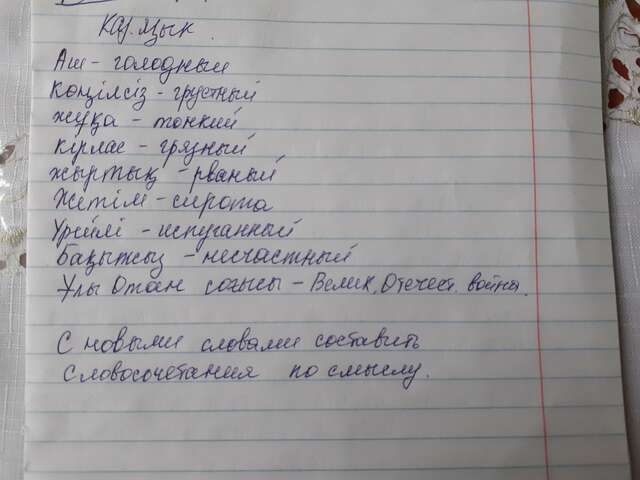 Каз. язык.
Аш - голодный
Көңілсіз - грустный
жұқа - тонкий
кірлас - грязный
жыртық - рваный
Жетім - сирота
Үрейлі - испуганный
Бақытсыз - несчастный
Ұлы Отан соғысы - Велик. Отечест. войны.
С новыми словами составить
Словосочетания по смыслу.